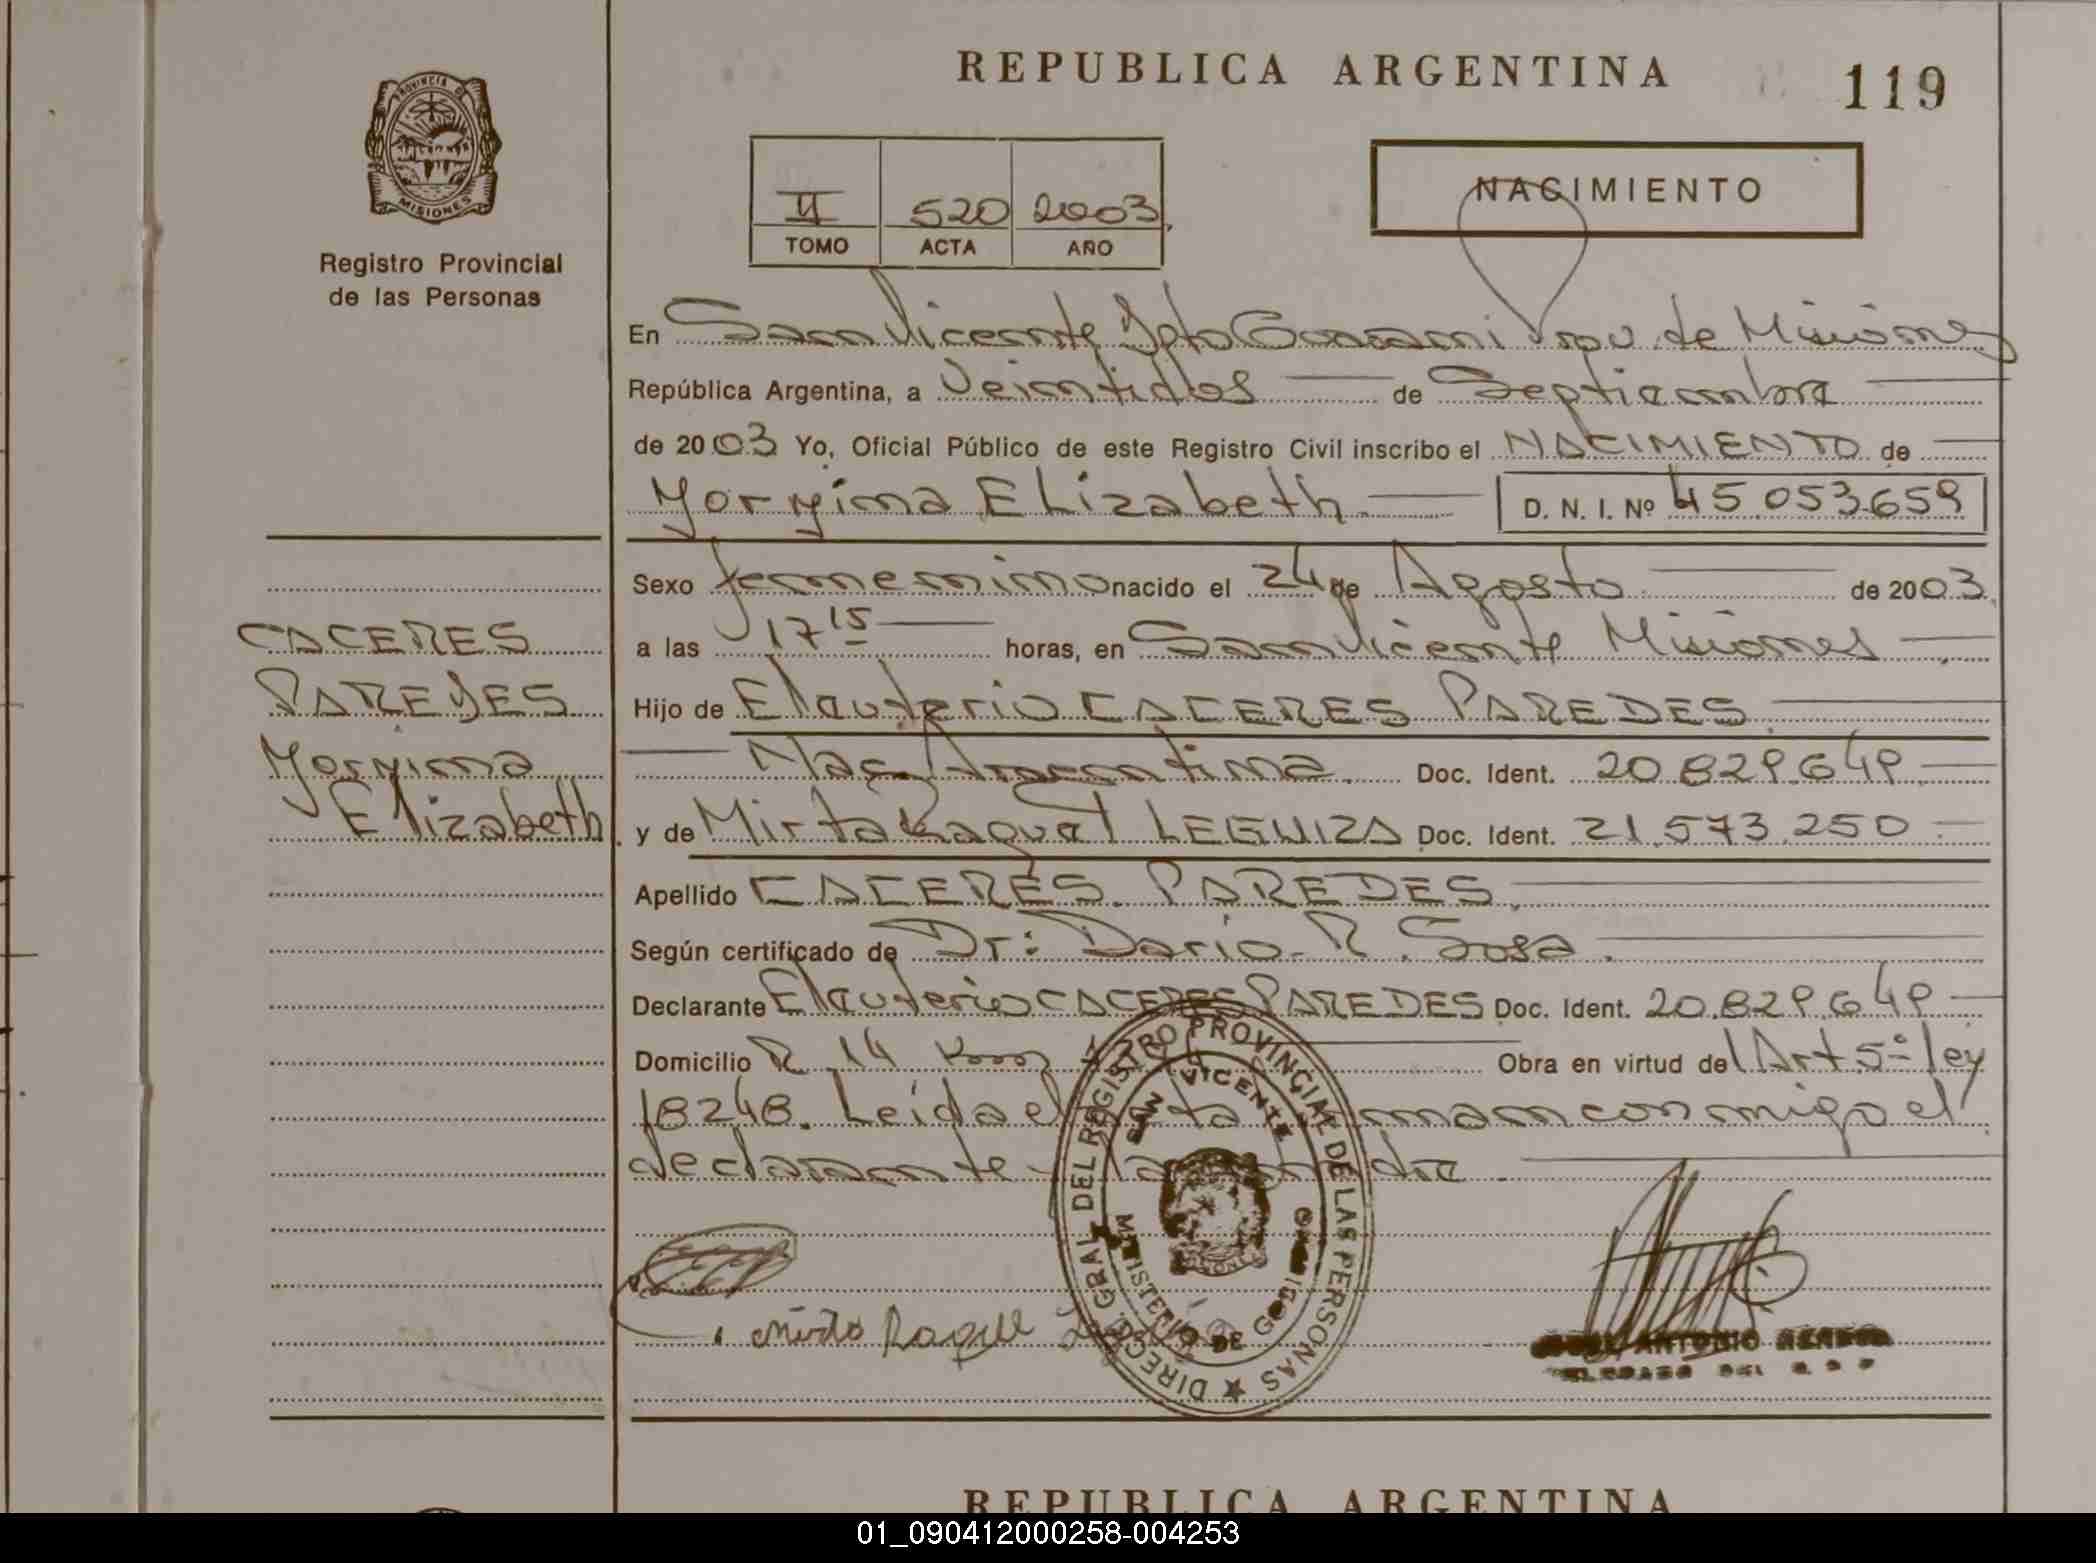 REPUBLICA ARGENTINA
119
PROVINCIA DE
MISIONES
Registro Provincial
de las Personas
II 520 2003
TOMO ACTA AÑO
NACIMIENTO
En San Vicente Dpto Guarani Prov. de Misiones
República Argentina, a Veintidos de Septiembre
de 2003 Yo, Oficial Público de este Registro Civil inscribo el NACIMIENTO de
Yoryina Elizabeth D. N. I. Nº 45.053.659
Sexo femenino nacido el 24 de Agosto de 2003
a las 17 15 horas, en San Vicente Misiones
Hijo de Elauterio CACERES PAREDES
Nac. Argentina. Doc. Ident. 20.829.649
y de Mirta Raquel LEGUIZA Doc. Ident. 21.573.250
Apellido CACERES PAREDES.
Según certificado de Dr: Dario R. Sosa.
Declarante Elauterio CACERES PAREDES Doc. Ident. 20.829.649
Domicilio R. 14 Obra en virtud del Art 5º ley
18248. Leida el conmigo el
declarante y la
CACERES
PAREDES
Yoryina
Elizabeth
DIREC. GRAL. DEL REGISTRO PROVINCIAL DE LAS PERSONAS
SAN VICENTE
MINISTERIO DE GOBIERNO
Mirta Raquel
ANTONIO
REPUBLICA ARGENTINA
01_090412000258-004253